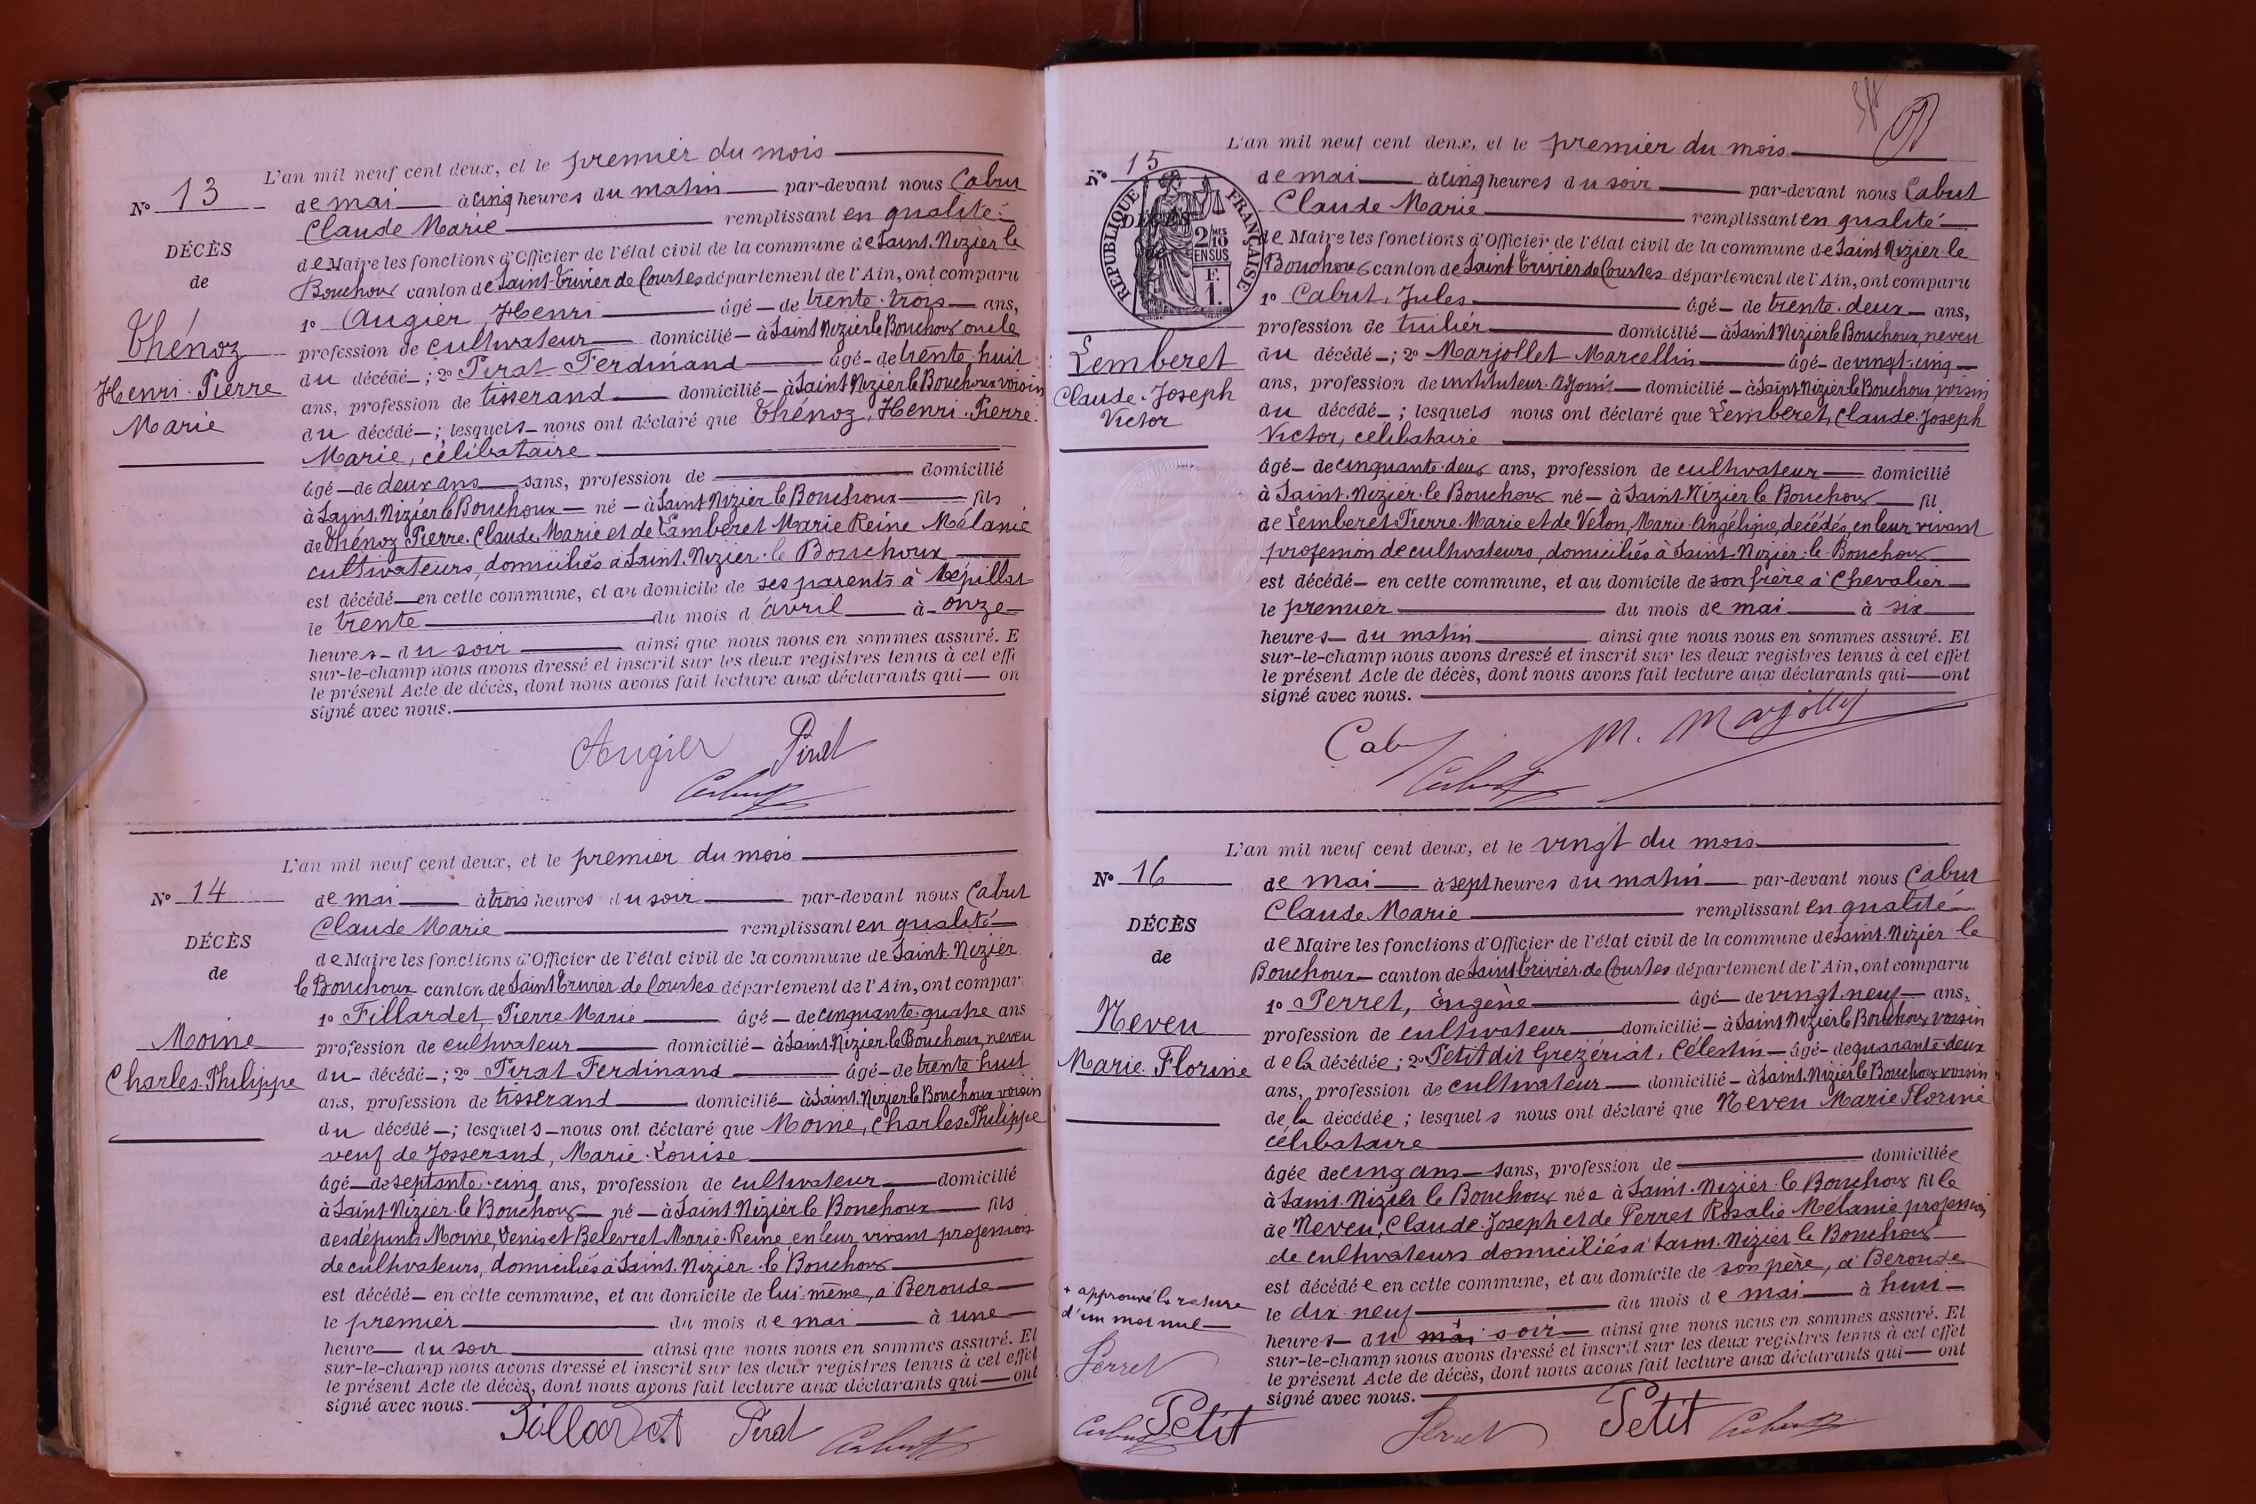 L'an mil neuf cent deux, et le premier du mois
N° 13
de mai à cinq heures du matin par-devant nous Cabut
Claude Marie remplissant en qualité
DÉCÈS
de Maire les fonctions d'Officier de l'état civil de la commune de Saint-Nizier le
de
Bouchoux canton de Saint-Trivier de Courtes département de l'Ain, ont comparu
1° Augier Henri âgé de trente-trois ans,
Thénoz
profession de cultivateur domicilié à Saint Nizier le Bouchoux oncle
du décédé ; 2° Pirat Ferdinand âgé de trente-huit
Henri-Pierre
ans, profession de tisserand domicilié à Saint Nizier le Bouchoux voisin
Marie
du décédé ; lesquels nous ont déclaré que Thénoz, Henri-Pierre
Marie, célibataire
âgé de deux ans sans, profession de domicilié
à Saint-Nizier le Bouchoux né à Saint Nizier le Bouchoux fils
de Thénoz Pierre-Claude Marie et de Lamberet Marie Reine Mélanie
cultivateurs, domiciliés à Saint-Nizier-le Bouchoux
est décédé en cette commune, et au domicile de ses parents à Mépillat
le trente du mois d'avril à onze
heures du soir ainsi que nous nous en sommes assuré. E
sur-le-champ nous avons dressé et inscrit sur les deux registres tenus à cet effe
le présent Acte de décès, dont nous avons fait lecture aux déclarants qui on
signé avec nous.
Augier Pirat
Cabut
L'an mil neuf cent deux, et le premier du mois
N° 14
de mai à trois heures du soir par-devant nous Cabut
Claude Marie remplissant en qualité
DÉCÈS
de Maire les fonctions d'Officier de l'état civil de la commune de Saint-Nizier
de
le Bouchoux canton de Saint Trivier de Courtes département de l'Ain, ont compar
1° Fillardet, Pierre Marie âgé de cinquante-quatre ans
Moine
profession de cultivateur domicilié à Saint-Nizier le Bouchoux, neveu
Charles-Philippe
du décédé ; 2° Pirat Ferdinand âgé de trente-huit
ans, profession de tisserand domicilié à Saint-Nizier le Bouchoux voisin
du décédé ; lesquels nous ont déclaré que Moine, Charles Philippe
veuf de Josserand, Marie-Louise
âgé de septante-cinq ans, profession de cultivateur domicilié
à Saint Nizier-le Bouchoux né à Saint Nizier le Bouchoux fils
des défunts Moine, Denis et Belevret Marie-Reine en leur vivant profession
de cultivateurs, domiciliés à Saint-Nizier-le Bouchoux
est décédé en cette commune, et au domicile de lui-même, à Beroude
le premier du mois de mai à une
heure du soir ainsi que nous nous en sommes assuré. Et
sur-le-champ nous avons dressé et inscrit sur les deux registres tenus à cet effet
le présent Acte de décès, dont nous avons fait lecture aux déclarants qui ont
signé avec nous.
Fillardet Pirat Cabut
L'an mil neuf cent deux, et le premier du mois
N° 15
de mai à cinq heures du soir par-devant nous Cabut
Claude Marie remplissant en qualité
DÉCÈS
RÉPUBLIQUE FRANÇAISE
2/10 EN SUS
F. 1.
de Maire les fonctions d'Officier de l'état civil de la commune de Saint Nizier-le
Bouchoux canton de Saint Trivier de Courtes département de l'Ain, ont comparu
1° Cabut, Jules âgé de trente-deux ans,
profession de tuilier domicilié à Saint Nizier le Bouchoux, neveu
Lemberet
du décédé ; 2° Marjollet Marcellin âgé de vingt-cinq
Claude-Joseph
ans, profession de instituteur-adjoint domicilié à Saint-Nizier le Bouchoux, voisin
Victor
du décédé ; lesquels nous ont déclaré que Lemberet, Claude-Joseph
Victor, célibataire
âgé de cinquante-deux ans, profession de cultivateur domicilié
à Saint-Nizier-le Bouchoux né à Saint Nizier le Bouchoux fil
de Lemberet Pierre-Marie et de Velon, Marie-Angéline, décédés, en leur vivant
profession de cultivateurs, domiciliés à Saint-Nizier-le-Bouchoux
est décédé en cette commune, et au domicile de son frère à Chevalier
le premier du mois de mai à six
heures du matin ainsi que nous nous en sommes assuré. Et
sur-le-champ nous avons dressé et inscrit sur les deux registres tenus à cet effet
le présent Acte de décès, dont nous avons fait lecture aux déclarants qui ont
signé avec nous.
Cab M. Marjollet
Cabut
L'an mil neuf cent deux, et le vingt du mois
N° 16
de mai à sept heures du matin par-devant nous Cabut
Claude Marie remplissant en qualité
DÉCÈS
de Maire les fonctions d'Officier de l'état civil de la commune de Saint-Nizier le
de
Bouchoux canton de Saint Trivier de Courtes département de l'Ain, ont comparu
1° Perret, Eugène âgé de vingt-neuf ans,
Neveu
profession de cultivateur domicilié à Saint Nizier le Bouchoux voisin
Marie-Florine
de la décédée ; 2° Petit dit Grézériat, Célestin âgé de quarante-deux
ans, profession de cultivateur domicilié à Saint-Nizier le Bouchoux voisin
de la décédée ; lesquels nous ont déclaré que Neveu Marie Florine
célibataire
âgée de cinq ans sans, profession de domiciliée
à Saint-Nizier le Bouchoux née à Saint-Nizier-le Bouchoux fille
de Neveu, Claude-Joseph et de Perret Rosalie Mélanie profession
de cultivateurs domiciliés à Saint-Nizier le Bouchoux
est décédée en cette commune, et au domicile de son père, à Beroude
+ approuvé la rature
le dix-neuf du mois de mai à huit
d'un mot nul
heures du mai soir ainsi que nous nous en sommes assuré. Et
sur-le-champ nous avons dressé et inscrit sur les deux registres tenus à cet effet
Perret
le présent Acte de décès, dont nous avons fait lecture aux déclarants qui ont
signé avec nous.
Cabut Petit Perret Petit Cabut